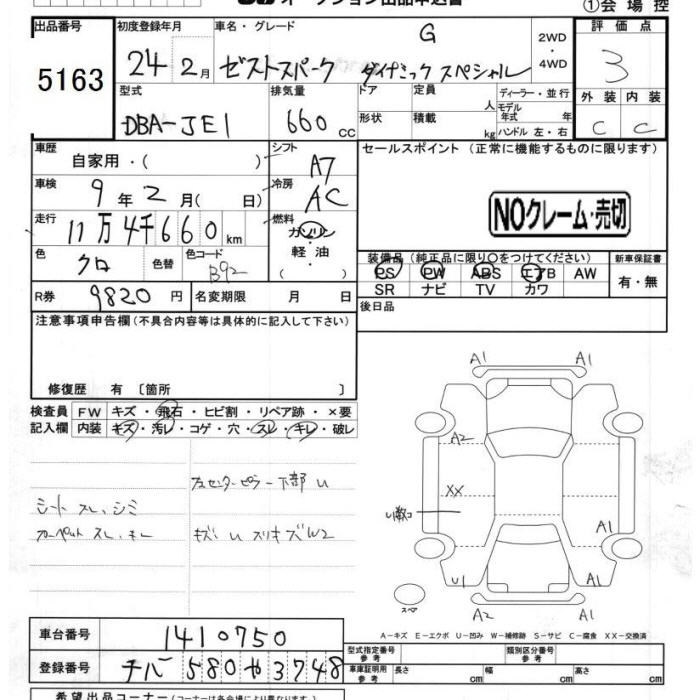 オークション出品申込書
①会場控
出品番号 初度登録年月 車名・グレード 評価点
5163
24年 2月 ゼストスパーク G ダイナミックスペシャル 2WD・4WD 3
型式 排気量 ドア 定員 人 ディーラー・並行 外装 内装
DBA-JE1 660cc 形状 積載 kg モデル年式 年 ハンドル 左・右 C C
車歴 自家用・( ) シフト A7 セールスポイント(正常に機能するものに限ります)
車検 9年2月(日) 冷房 AC
NOクレーム・売切
走行 11万4千660km 燃料 ガソリン・軽油・( )
色 クロ 色替 色コード B92
装備品(純正品に限り○をつけてください) 新車保証書
PS PW ABS エアB AW 有・無
SR ナビ TV カワ
R券 9820円 名変期限 月 日 後日品
注意事項申告欄(不具合内容等は具体的に記入して下さい)
修復歴 有〔箇所 〕
検査員 FW キズ・飛石・ヒビ割・リペア跡・×要
記入欄 内装 キズ・汚レ・コゲ・穴・スレ・キレ・破レ
シート スレ、シミ
左センターピラー下部U
キズU スリキズW2
A1 A1
A2
XX
A1
U1 A1
スペア
A2 A1
A-キズ E-エクボ U-凹み W-補修跡 S-サビ C-腐食 XX-交換済
車台番号 1410750
登録番号 チバ580や3748
型式指定番号 参考 類別区分番号 参考
車庫証明用 参考 長さ cm 幅 cm 高さ cm
希望出品コーナー(コーナーは各会場により異なります)